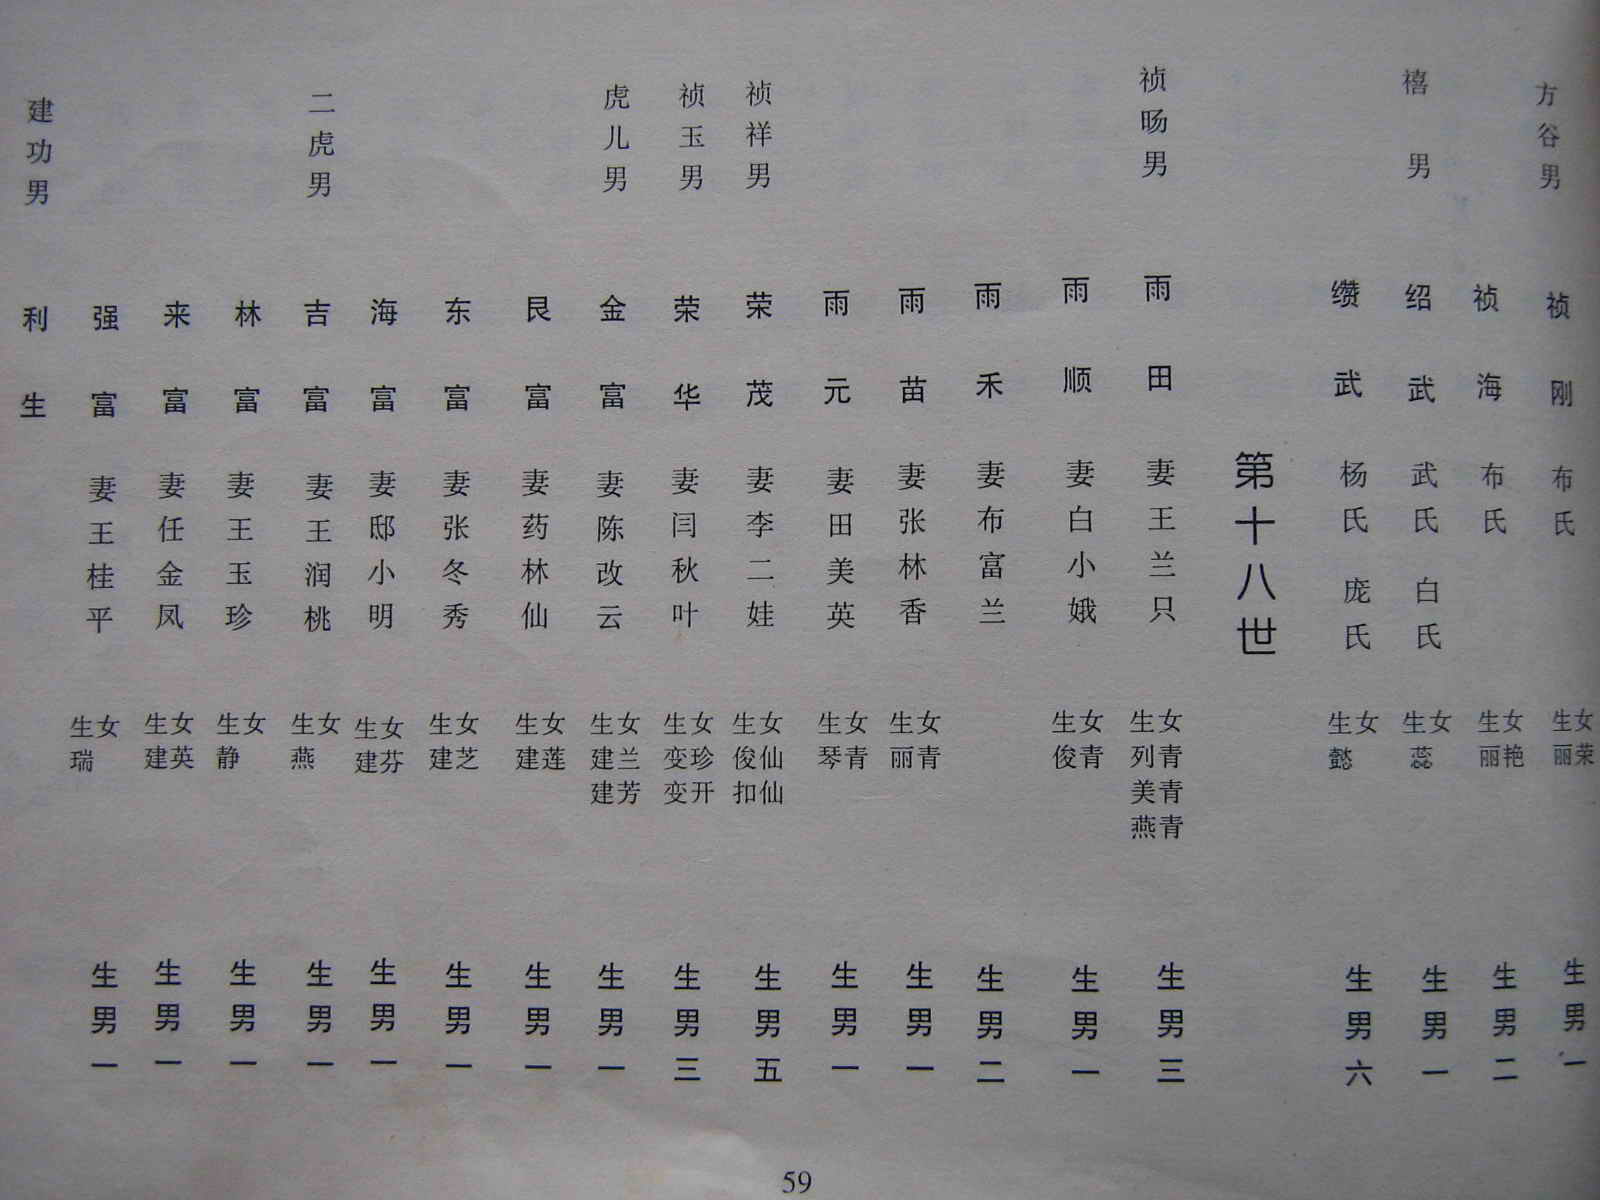 方谷男
祯刚 布氏 生女丽荣 生男一
祯海 布氏 生女丽艳 生男二
禧男
绍武 武氏 白氏 生女蕊 生男一
缵武 杨氏 庞氏 生女懿 生男六
第十八世
祯旸男
雨田 妻王兰只 生女列青 美青 燕青 生男三
雨顺 妻白小娥 生女俊青 生男一
雨禾 妻布富兰 生男二
雨苗 妻张林香 生女丽青 生男一
雨元 妻田美英 生女琴青 生男一
祯祥男
荣茂 妻李二娃 生女俊仙 扣仙 生男五
祯玉男
荣华 妻闫秋叶 生女变珍 变开 生男三
虎儿男
金富 妻陈改云 生女建兰 建芳 生男一
艮富 妻药林仙 生女建莲 生男一
东富 妻张冬秀 生女建芝 生男一
海富 妻邸小明 生女建芬 生男一
二虎男
吉富 妻王润桃 生女燕 生男一
林富 妻王玉珍 生女静 生男一
来富 妻任金凤 生女建英 生男一
强富 妻王桂平 生女瑞 生男一
建功男
利生
59